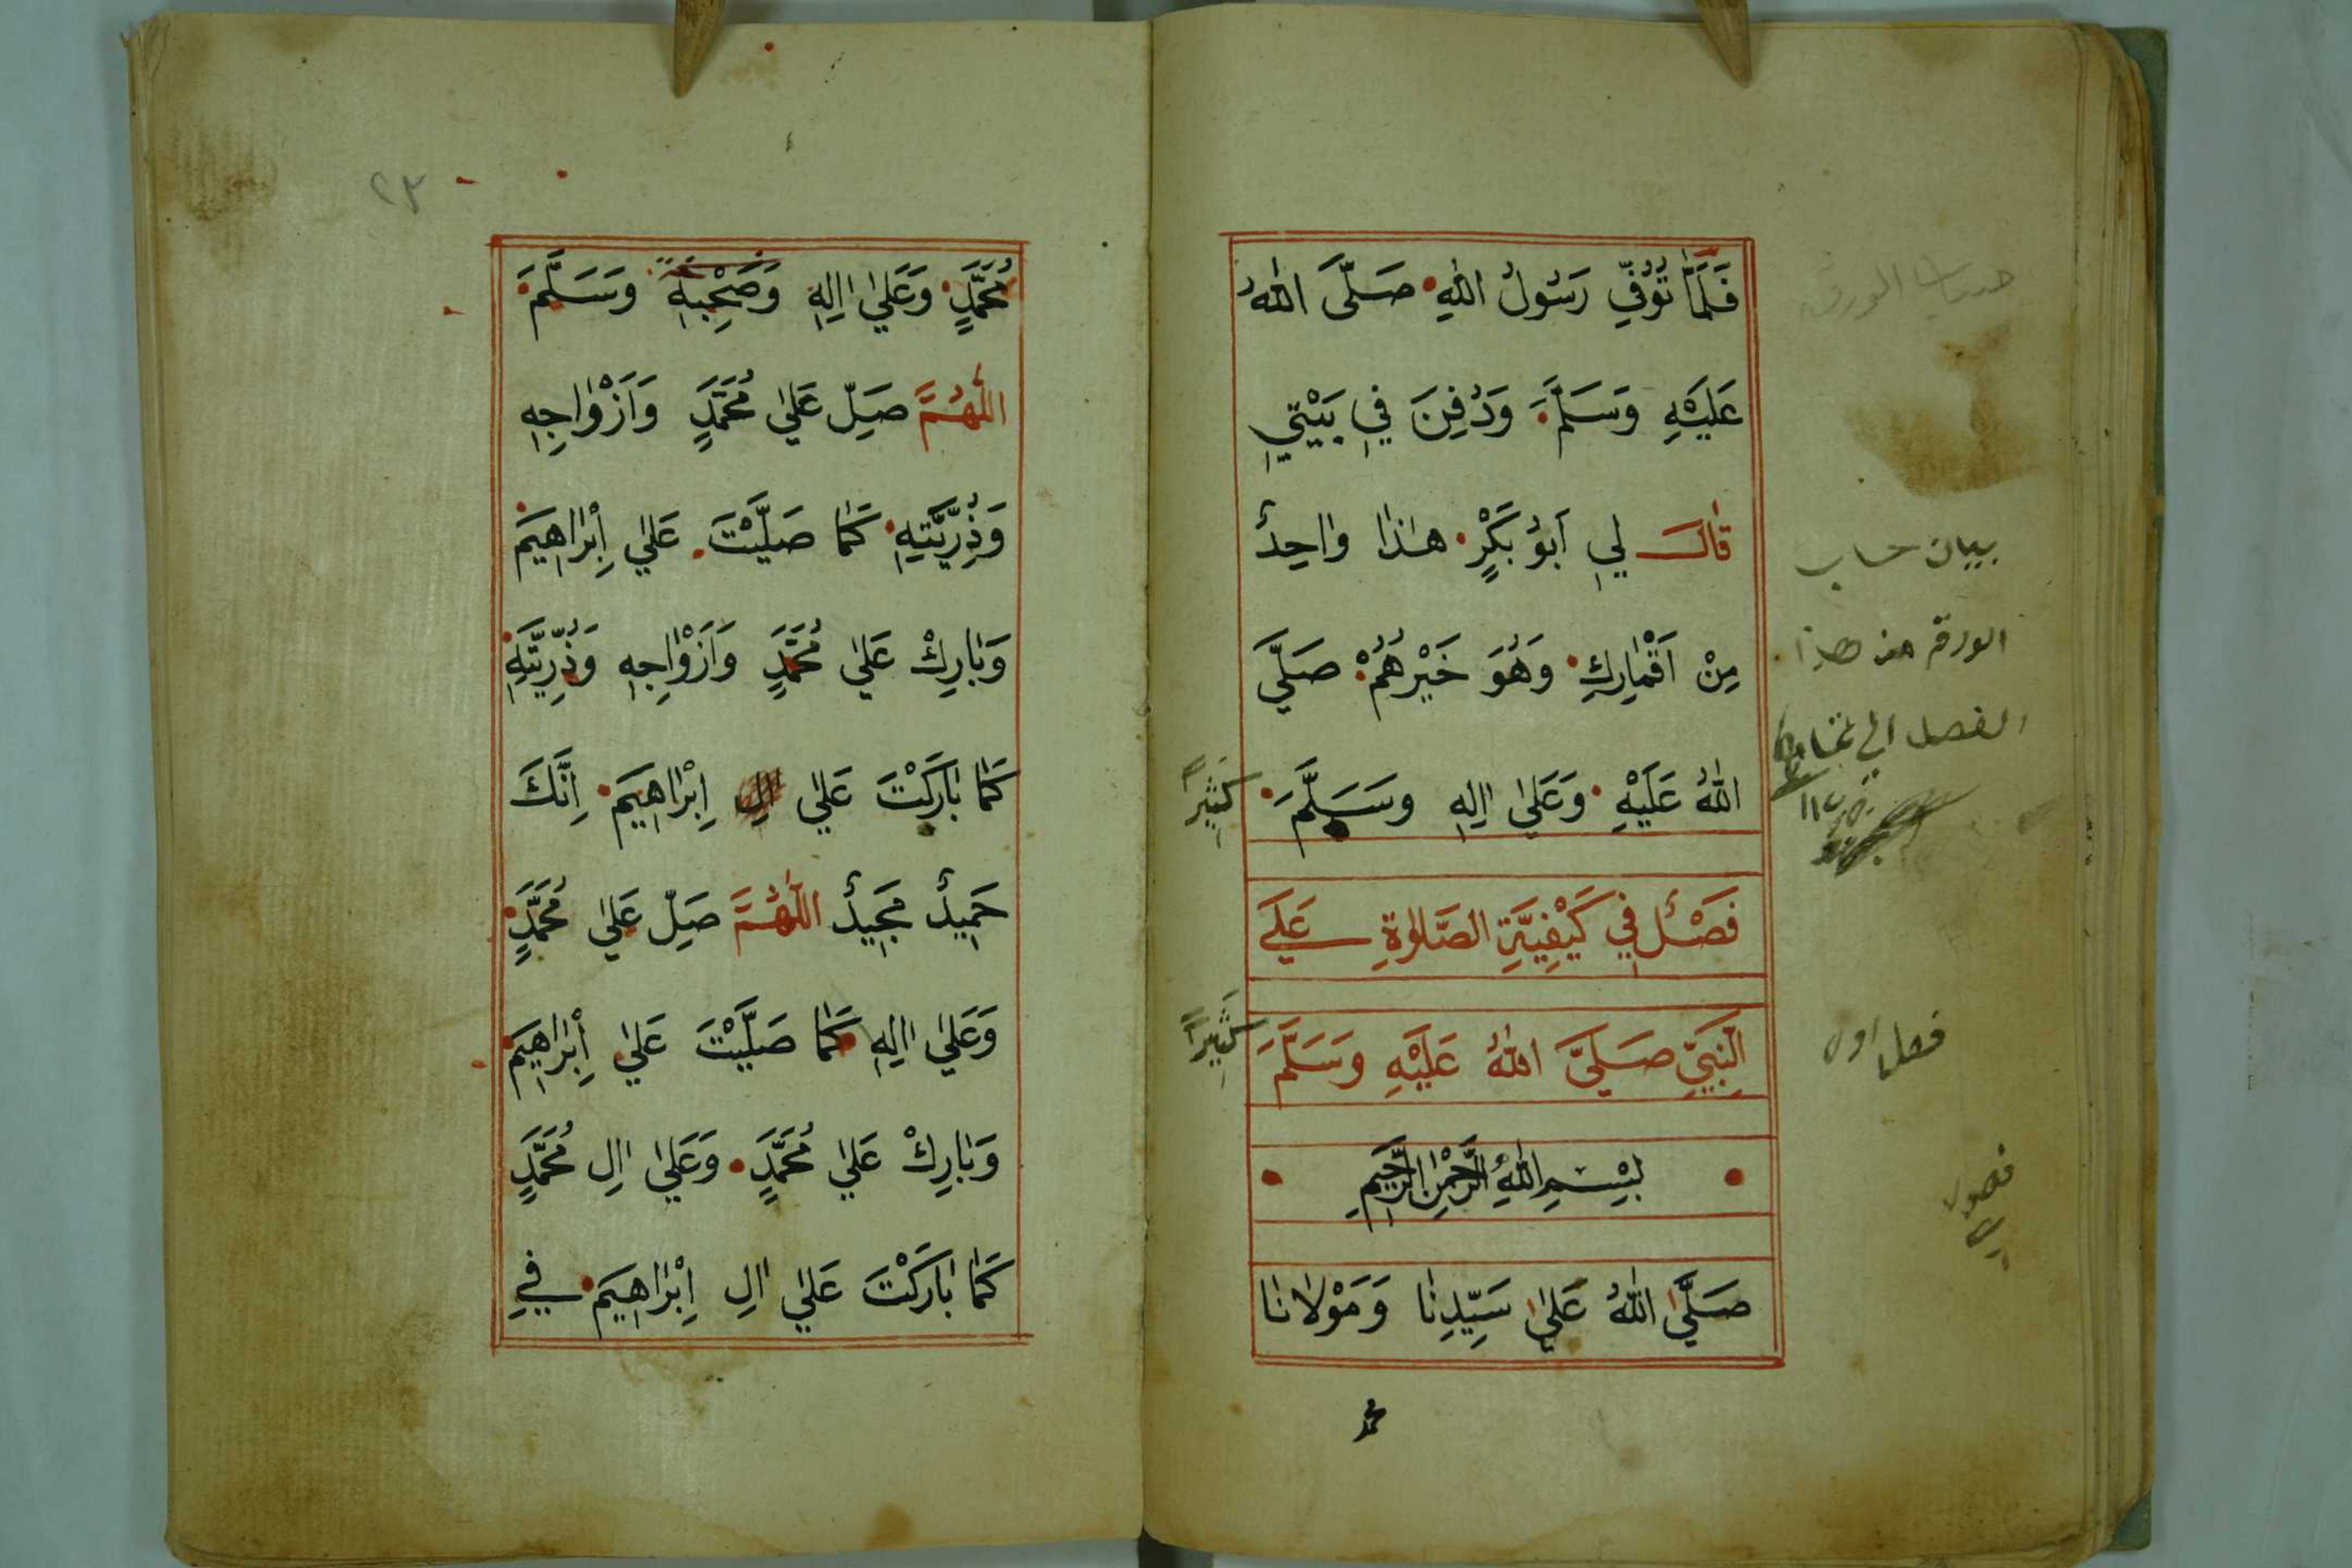 فَلَمَّا تُوُفِّيَ رَسُولُ اللّٰهِ صَلَّى اللّٰهُ
عَلَيْهِ وَسَلَّمَ وَدُفِنَ فِي بَيْتِي
قَالَ لِي اَبُو بَكْرٍ هٰذَا وَاحِدٌ
مِنْ اَقْمَارِكِ وَهُوَ خَيْرُهُمْ صَلَّي
اللّٰهُ عَلَيْهِ وَعَلٰي اٰلِهِ وَسَلَّمَ
كَثِيرًا
فَصْلٌ فِي كَيْفِيَّةِ الصَّلٰوةِ عَلَي
النَّبِيِّ صَلَّيَ اللّٰهُ عَلَيْهِ وَسَلَّمَ
كَثِيرًا
بِسْمِ اللّٰهِ الرَّحْمٰنِ الرَّحِيمِ
صَلَّي اللّٰهُ عَلٰي سَيِّدِنَا وَمَوْلَانَا
محمد
بيان حساب
الورق من هذا
الفصل الي
فصل اول
٢٣
مُحَمَّدٍ وَعَلٰي اٰلِهِ وَصَحْبِهِ وَسَلَّمَ
اَللّٰهُمَّ صَلِّ عَلٰي مُحَمَّدٍ وَاَزْوَاجِهِ
وَذُرِّيَّتِهِ كَمَا صَلَّيْتَ عَلٰي اِبْرَاهِيمَ
وَبَارِكْ عَلٰي مُحَمَّدٍ وَاَزْوَاجِهِ وَذُرِّيَّتِهِ
كَمَا بَارَكْتَ عَلٰي اٰلِ اِبْرَاهِيمَ اِنَّكَ
حَمِيدٌ مَجِيدٌ اَللّٰهُمَّ صَلِّ عَلٰي مُحَمَّدٍ
وَعَلٰي اٰلِهِ كَمَا صَلَّيْتَ عَلٰي اِبْرَاهِيمَ
وَبَارِكْ عَلٰي مُحَمَّدٍ وَعَلٰي اٰلِ مُحَمَّدٍ
كَمَا بَارَكْتَ عَلٰي اٰلِ اِبْرَاهِيمَ فِي